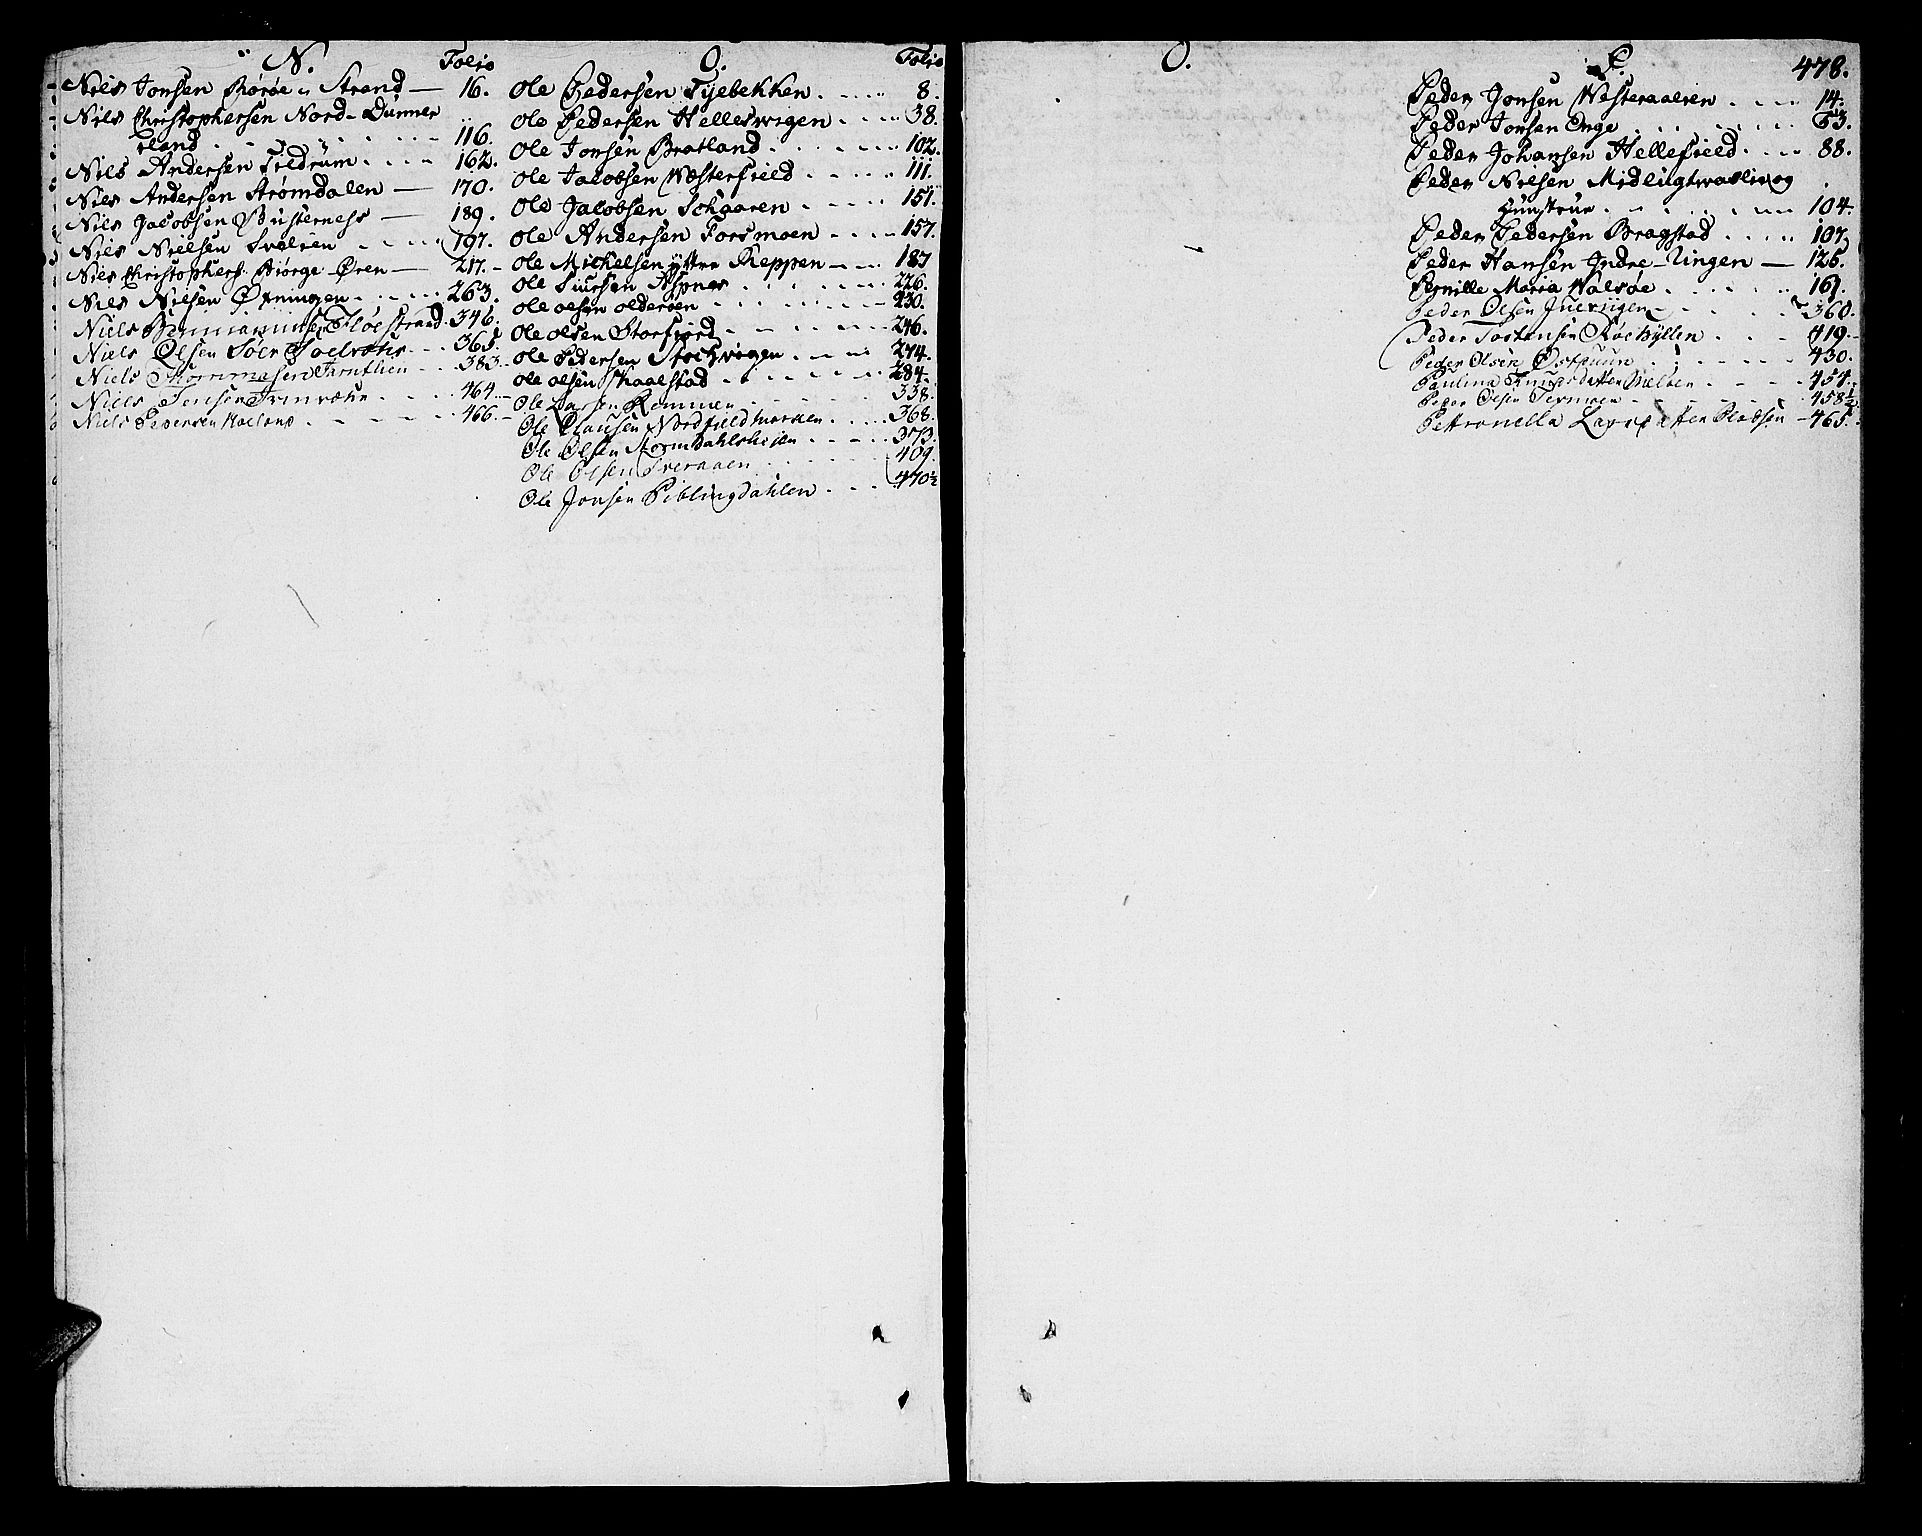 N. Folio
Niels Jonsen Rørøe u Strand — 16.
Niels Christophersen Nord-Dünner
eland . . . . . 116.
Niels Andersen Tildrüm . . . . 162.
Niels Andersen Strømdalen — 170.
Niels Jacobsen Büsterness — 189.
Niels Nielsen Svalien . . . . 197.
Niels Christophers: Biörge Øren — 217.
Niels Nielsen Øxningen . . . . 263.
Niels Benjaminsen Floestrand 346.
Niels Olsen Søer . . . 365
Niels Thommesen . . . 383.
Niels Jensen . . . . 464.
Niels Pedersen Hæeland . . . . 466.
O. Folio
Ole Pedersen Tyebekken . . . . 8.
Ole Pedersen Hellesvigen . . . . 38.
Ole Jonsen Bratland . . . . . 102.
Ole Jacobsen Westerfield . . . . 111.
Ole Jacobsen Schaaren . . . . 151.
Ole Andersen Forsmoen . . . . 157.
Ole Michelsen ÿttre Reppen . . . 187
Ole Siursen Aspnes . . . . 226.
Ole Olsen Olderøen . . . . 230.
Ole Olsen Storfiord . . . . 246.
Ole Pedersen Stochvigen . . . . 274.
Ole Olsen Skaalstad . . . . 284.
Ole Larsen Remmen . . . . 338.
Ole Clausen Nordfieldmarken . . . . 368.
Ole Olsen Stormdahlsheien . . . . 373.
Ole Olsen Tveraaen . . . . 409.
Ole Jonsen Piblingdahlen . . . . 470½
O.
P. 478.
Peder Jonsen Westeraalien . . . . 14.
Peder Jonsen Enge . . . . . 53.
Peder Johansen Hellefield . . . . 88.
Peder Nielsen Midlugtwaslie og
Hünstrue . . . . . 104.
Peder Pedersen Bragstad . . . . 107.
Peder Hansen Indre-Ungen — 125.
Pernille Maria Walsøe . . . . . 161.
Peder Olsen Juevigen . . . . 360.
Peder Tostensen Røekyllen . . . 419.
Peder Olsen . . . . 430.
Paulina . . . . 454.
Peder Olsen . . . . 458½
Petronella — 465.